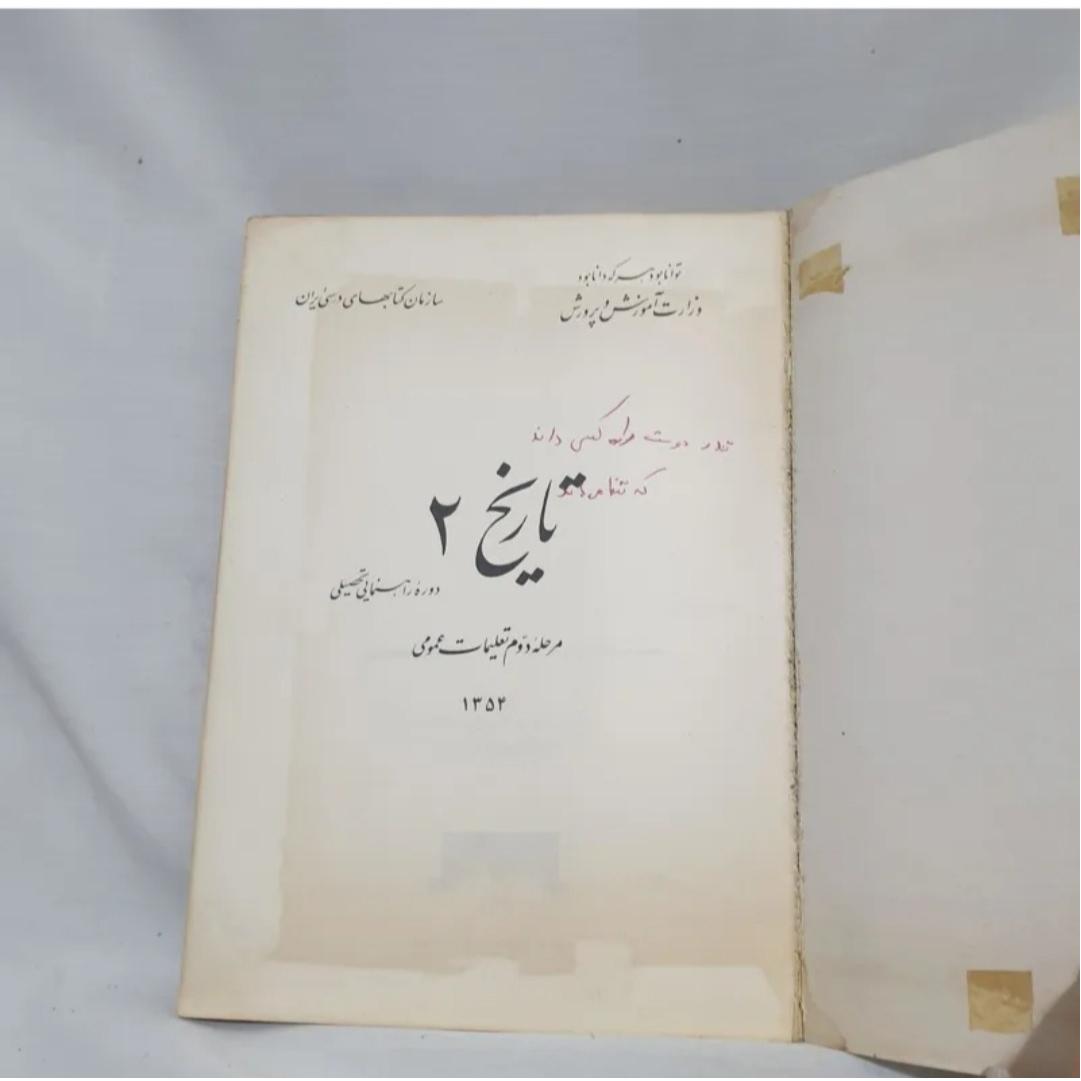 توانا بود هر که دانا بود
وزارت آموزش و پرورش
سازمان کتابهای درسی ایران
قدر دوست را کسی داند
که تنها می‌داند
تاریخ ۲
دورهٔ راهنمایی تحصیلی
مرحلهٔ دوّم تعلیمات عمومی
۱۳۵۴